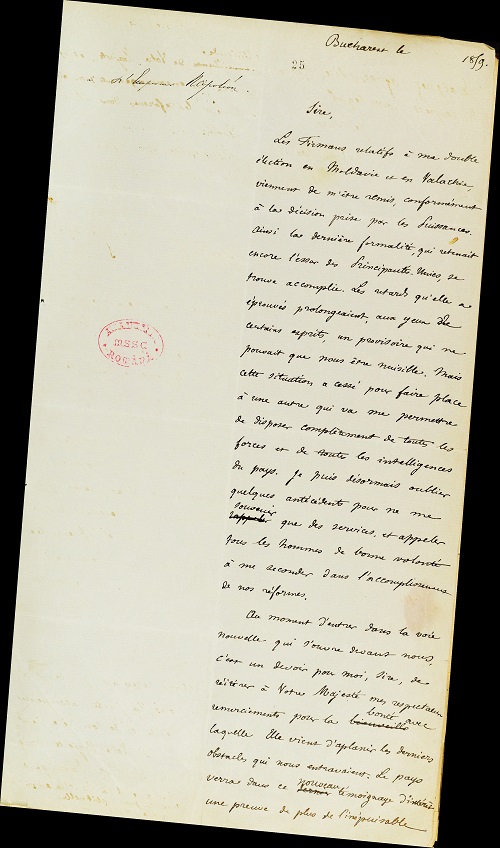 Bucharest le 1859.
25
à l'Empereur Napoléon.
Sire,
Les Firmans relatifs à ma double
élection en Moldavie et en Valachie,
viennent de m'être remis, conformément
à la décision prise par les Puissances.
Ainsi la dernière formalité, qui retenait
encore l'essor des Principautés-Unies, se
trouve accomplie. Les retards qu'elle a
éprouvés prolongeaient, aux yeux de
certains esprits, un provisoire qui ne
pouvait que nous être nuisible. Mais
cette situation a cessé pour faire place
à une autre qui va me permettre
de disposer complètement de toutes les
forces et de toutes les intelligences
du pays. Je puis désormais oublier
quelques antécédents pour ne me
souvenir
rappeler que des services, et appeler
tous les hommes de bonne volonté
à me seconder dans l'accomplissement
de nos réformes.
Au moment d'entrer dans la voie
nouvelle qui s'ouvre devant nous,
c'est un devoir pour moi, Sire, de
réitérer à Votre Majesté mes respectueux
bonté
remerciements pour la bienveillance avec
laquelle Elle vient d'aplanir les derniers
obstacles qui nous entravaient. Le pays
nouveau
verra dans ce dernier témoignage d'intérêt
une preuve de plus de l'inépuisable
MSSC